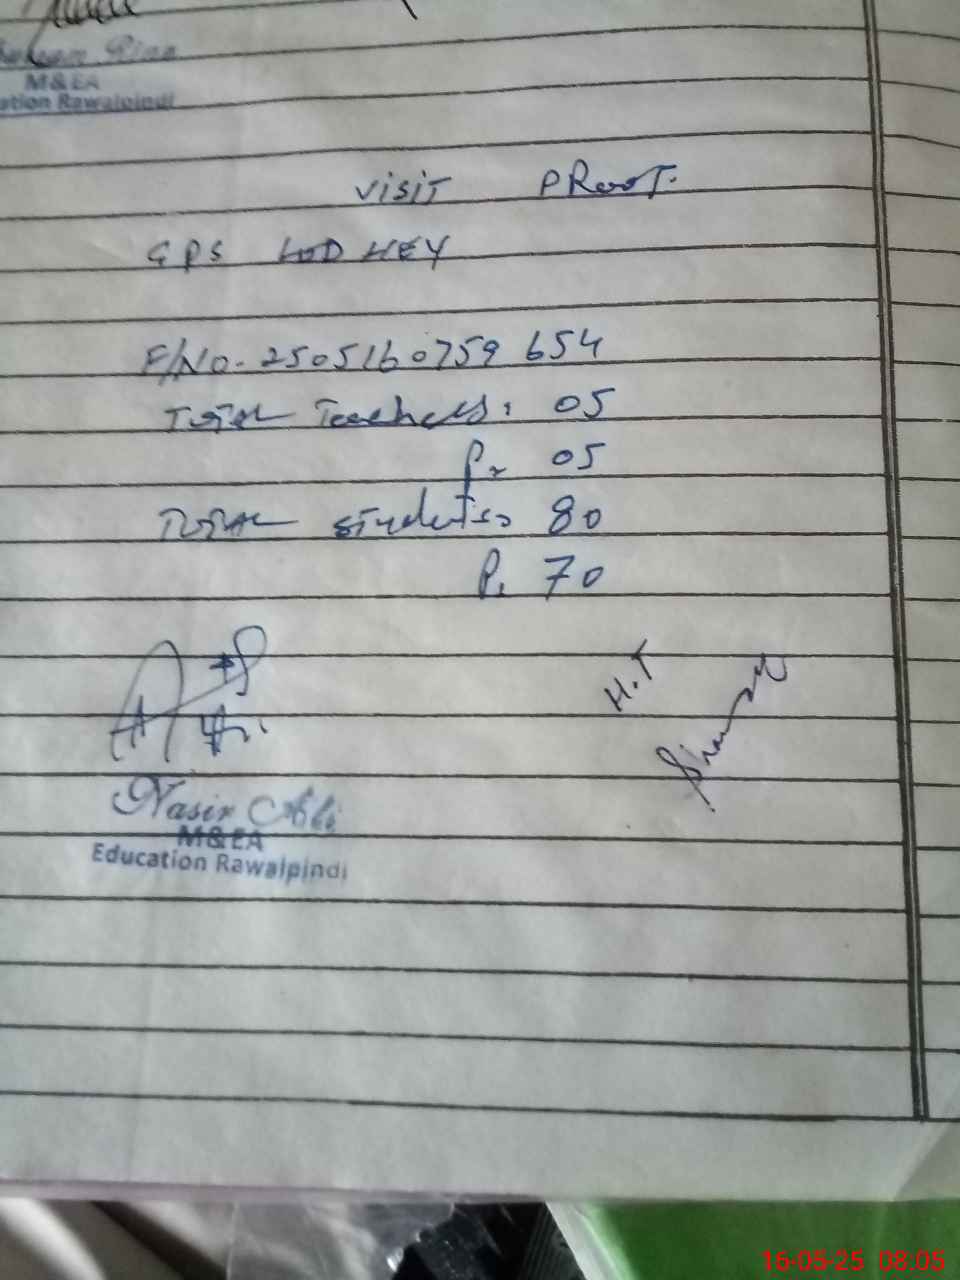 M&EA
ation Rawalpindi
VISIT PROOT.
GPS LODHEY
F/NO. 250516 0759 654
TOTAL Teachers: 05
P. 05
TOTAL Students: 80
P. 70
H.T
Nasir Ali
M&EA
Education Rawalpindi
16-05-25 08:05